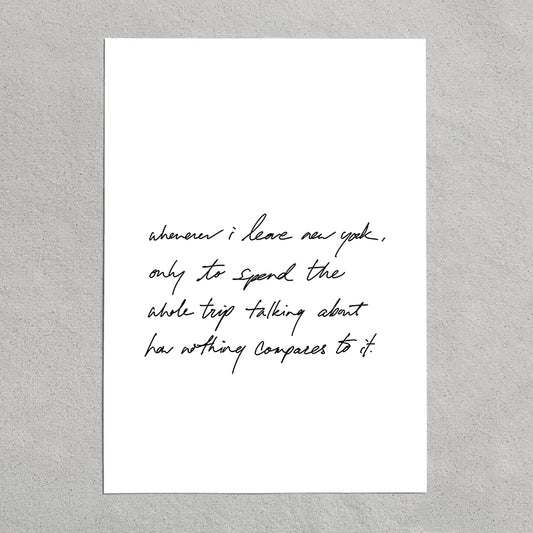 whenever i leave new york,
only to spend the
whole trip talking about
how nothing compares to it.